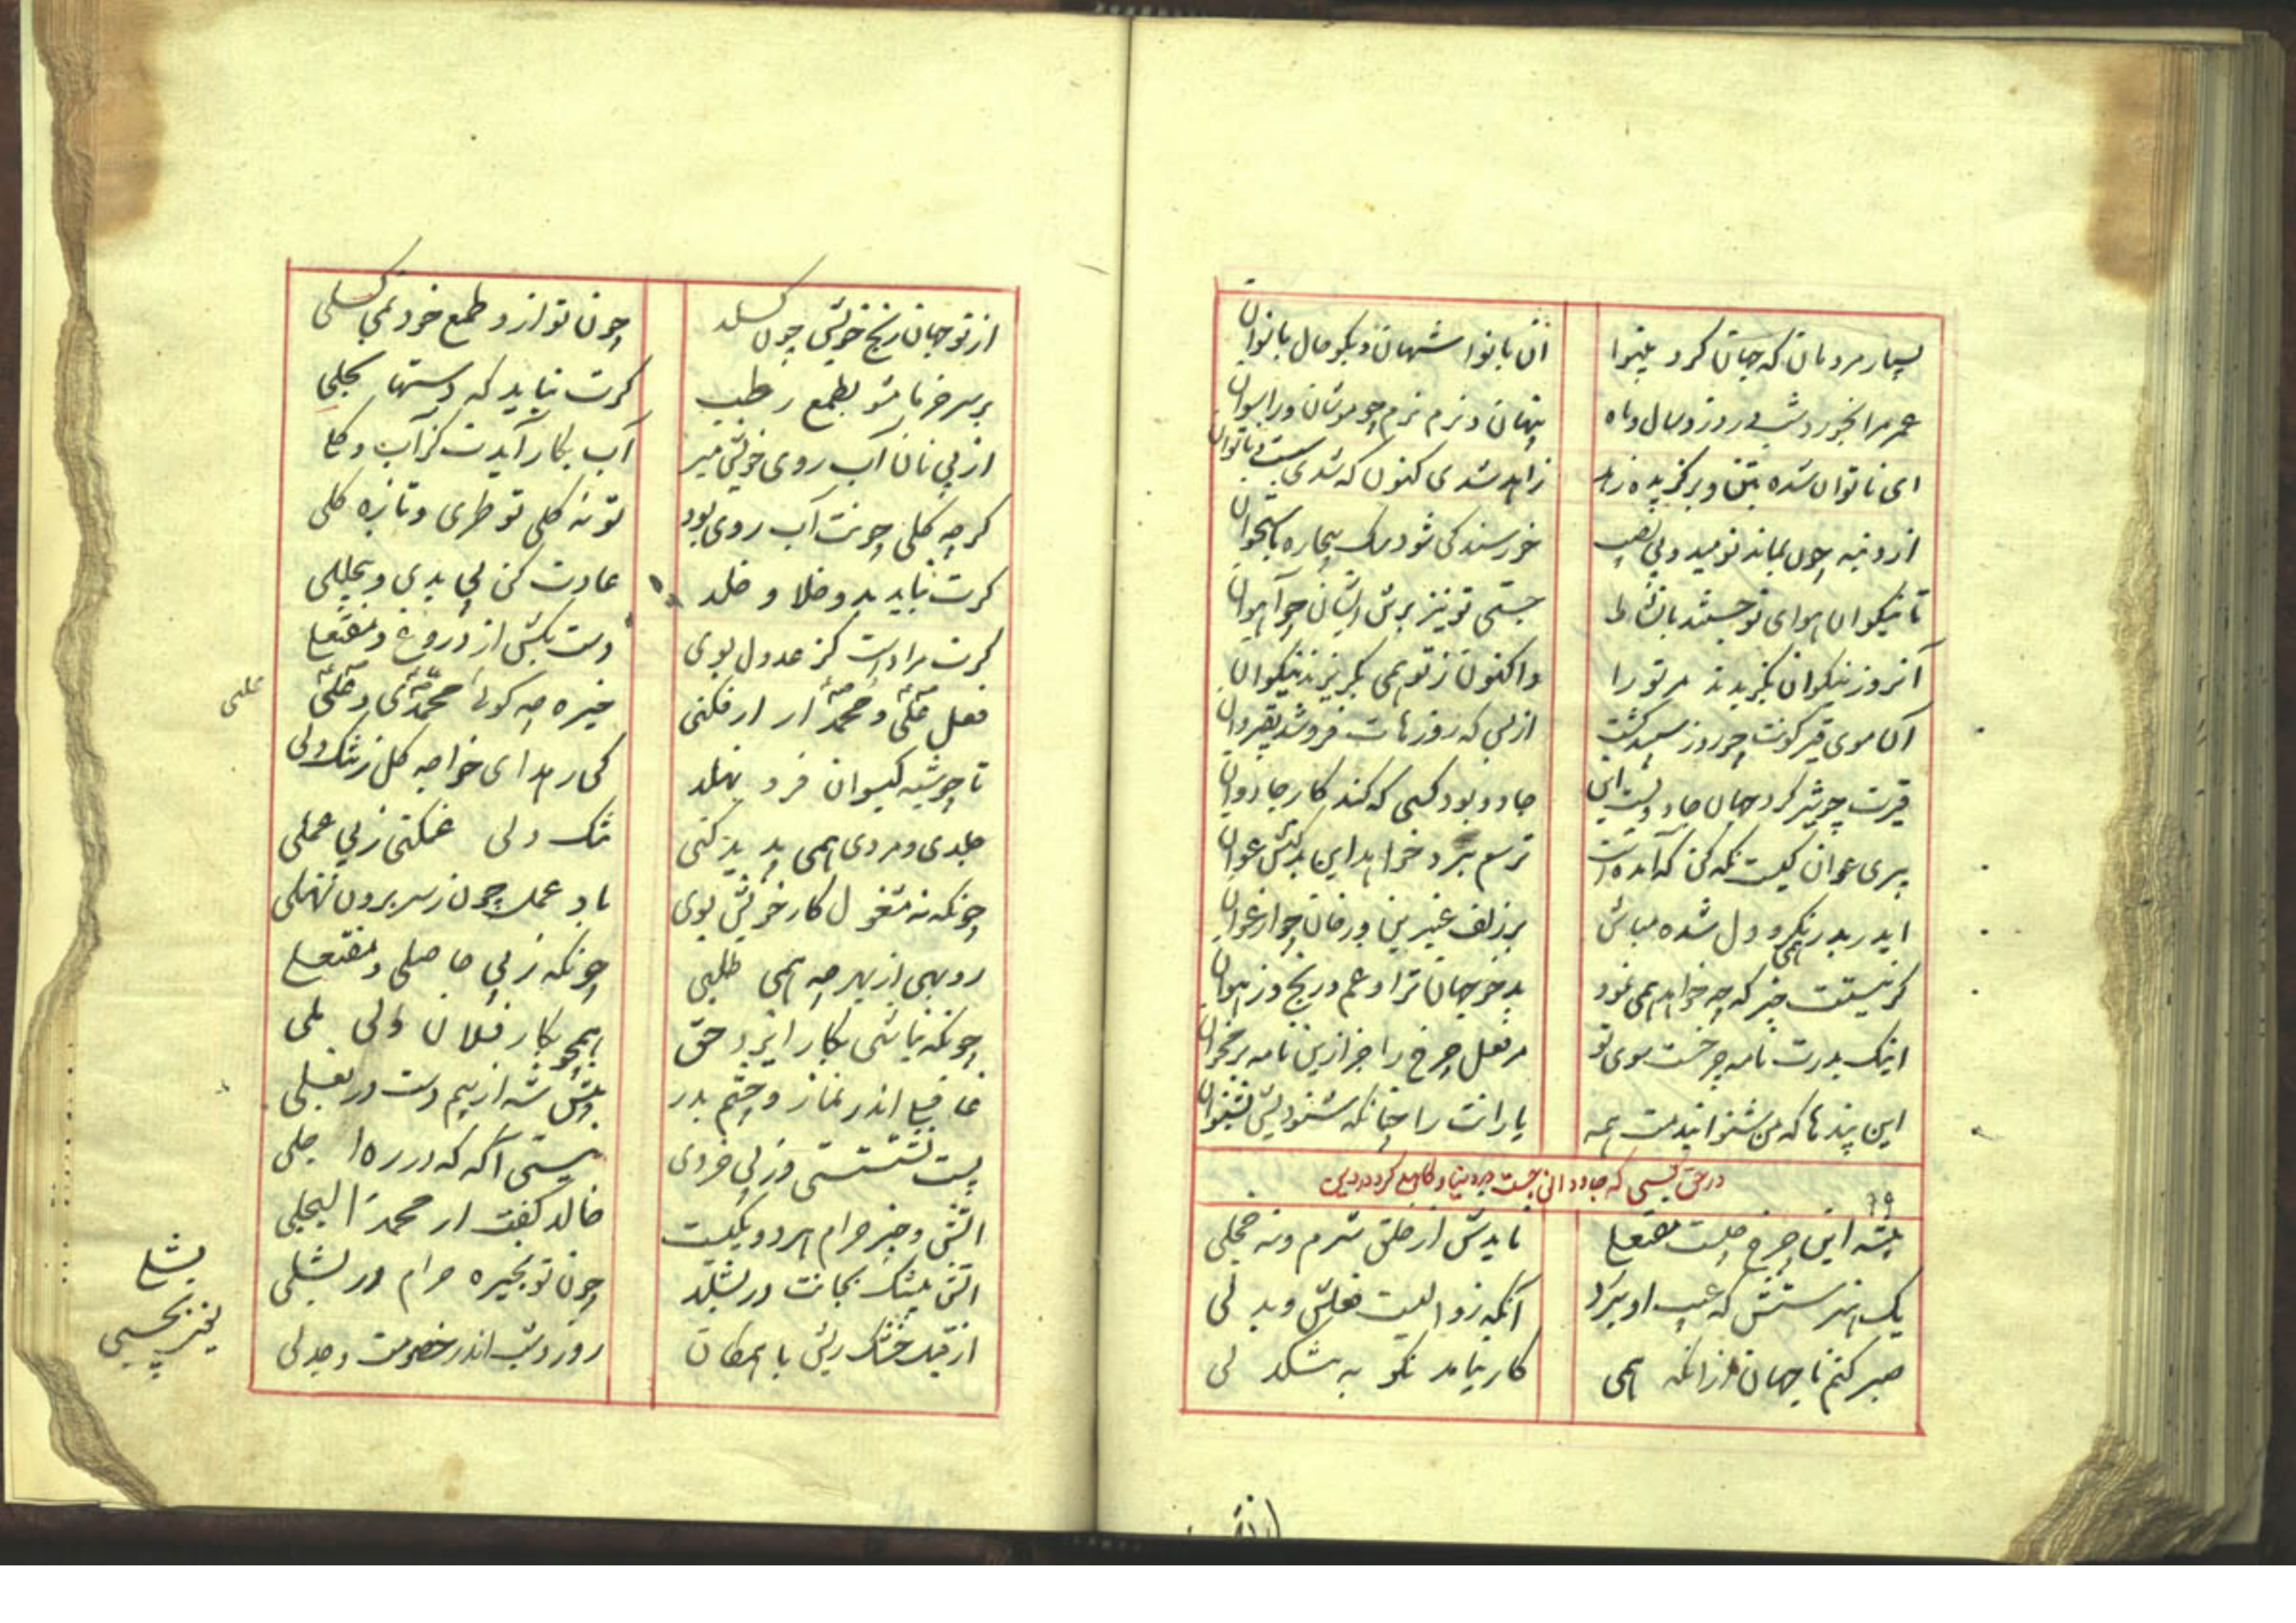 بسیار مردمان که جهان کرد بینوا
آن بانوا شهان و نکو حال بانوان
عمر مرا بخورد شب و روز و سال و ماه
پنهان و نرم نرم چو موشان و راسوان
ای ناتوان شده بتن و برگزیده زهد
زاهد شدی کنون که شدی سست و ناتوان
از دنبه چون بماند نومید و بی نصیب
خرسند کی شود سک بیچاره باستخوان
تا نیکوان هوای تو جستند با نشاط
جستی تو نیز برش ایشان چو آهوان
آنروز نیکوان بگزیدند مر تو را
و اکنون ز تو همی بگریزند نیکوان
آکا موی قیر کونت چو روز سپید کشت
از بس که روزهات فروشد بقیروان
قیرت چو شیر کرد جهان جادویست این
جادو بود کسی که کند کار جادوان
پیری عوان کیست نکه کن که آمده است
ترسم ببرد خواهد این بدکنش عوان
ایدر بدر نکر و دل شده مباش
بر زلف عنبرین و رخان چو ارغوان
کر نیستت خبر که چه خواهم همی نمود
بدخو جهان ترا و غم و رنج وز هوان
اینک بدرت نامه چرخست سوی تو
مر فعل چرخ را جز ازین نامه بر مخوان
این پندها که من شنوانیدمت همه
یارانت را چنانکه شنودیش بشنوان
در حق کسی که جاودانی جست در دنیا و کاهلی کرد در دین
۶۹
پیشه این چرخ چیست مفتعلی
نایدش از خلق شرم و نه خجلی
یک هنرستش که عیب او ببرد
آنکه زوالیست فعلش و بدلی
صبر کنم با جهان ازانکه همی
کار نیامد نکو به شکدلی
از تو جهان رنج خویش چون کسلد
چون تو ازو طمع خود نمی کسلی
بر سر خرما مشو بطمع رطب
کرت نباید که دستها بخلی
از پی نان آب روی خویش مبر
آب بکار آیدت کز آب و کلی
کر چه کلی چونت آب روی بود
تو نه کلی تو طری و تازه کلی
کرت نباید بد و خلا و خلد
عادت کن بی بدی و بیخللی
کرت مراد است کز عدول بوی
دست بکش از دروغ و مفتعلی
فعل علی و محمد ار نکنی
خیره چه کوئی محمدی و علیی
علیی
تا چو شبه کیسوان فرو نهلد
کی رهد ای خواجه کل ز شک دلی
جلدی و مردی همی پدید کنی
شک دلی غمکنی ز بی عملی
چونکه نه مشغول کار خویش بوی
باد عمل چون ز سر برون نهلی
روبهی از بهر چه همی طلبی
چونکه ز بی حاصلی و مفتعلی
چونکه نباشی بکار ایزد حق
همچو بکار فلان ولی بلی
غافلی اندر نماز و چشم بدر
پیش شه از بیم دست در بغلی
پست نشستستی وز بی خردی
نیستی آکه که در ره اجلی
آتش و خیر حرام هر دو یکیست
خالد کفت از محمد البجلی
آتش بیشک بجانت در بشلد
چون تو بخیره حرام در بشلی
بشلی
یعنی بچسبی
از قبل خشک ریش با همکان
روز و شب اندر خصومت و جدلی